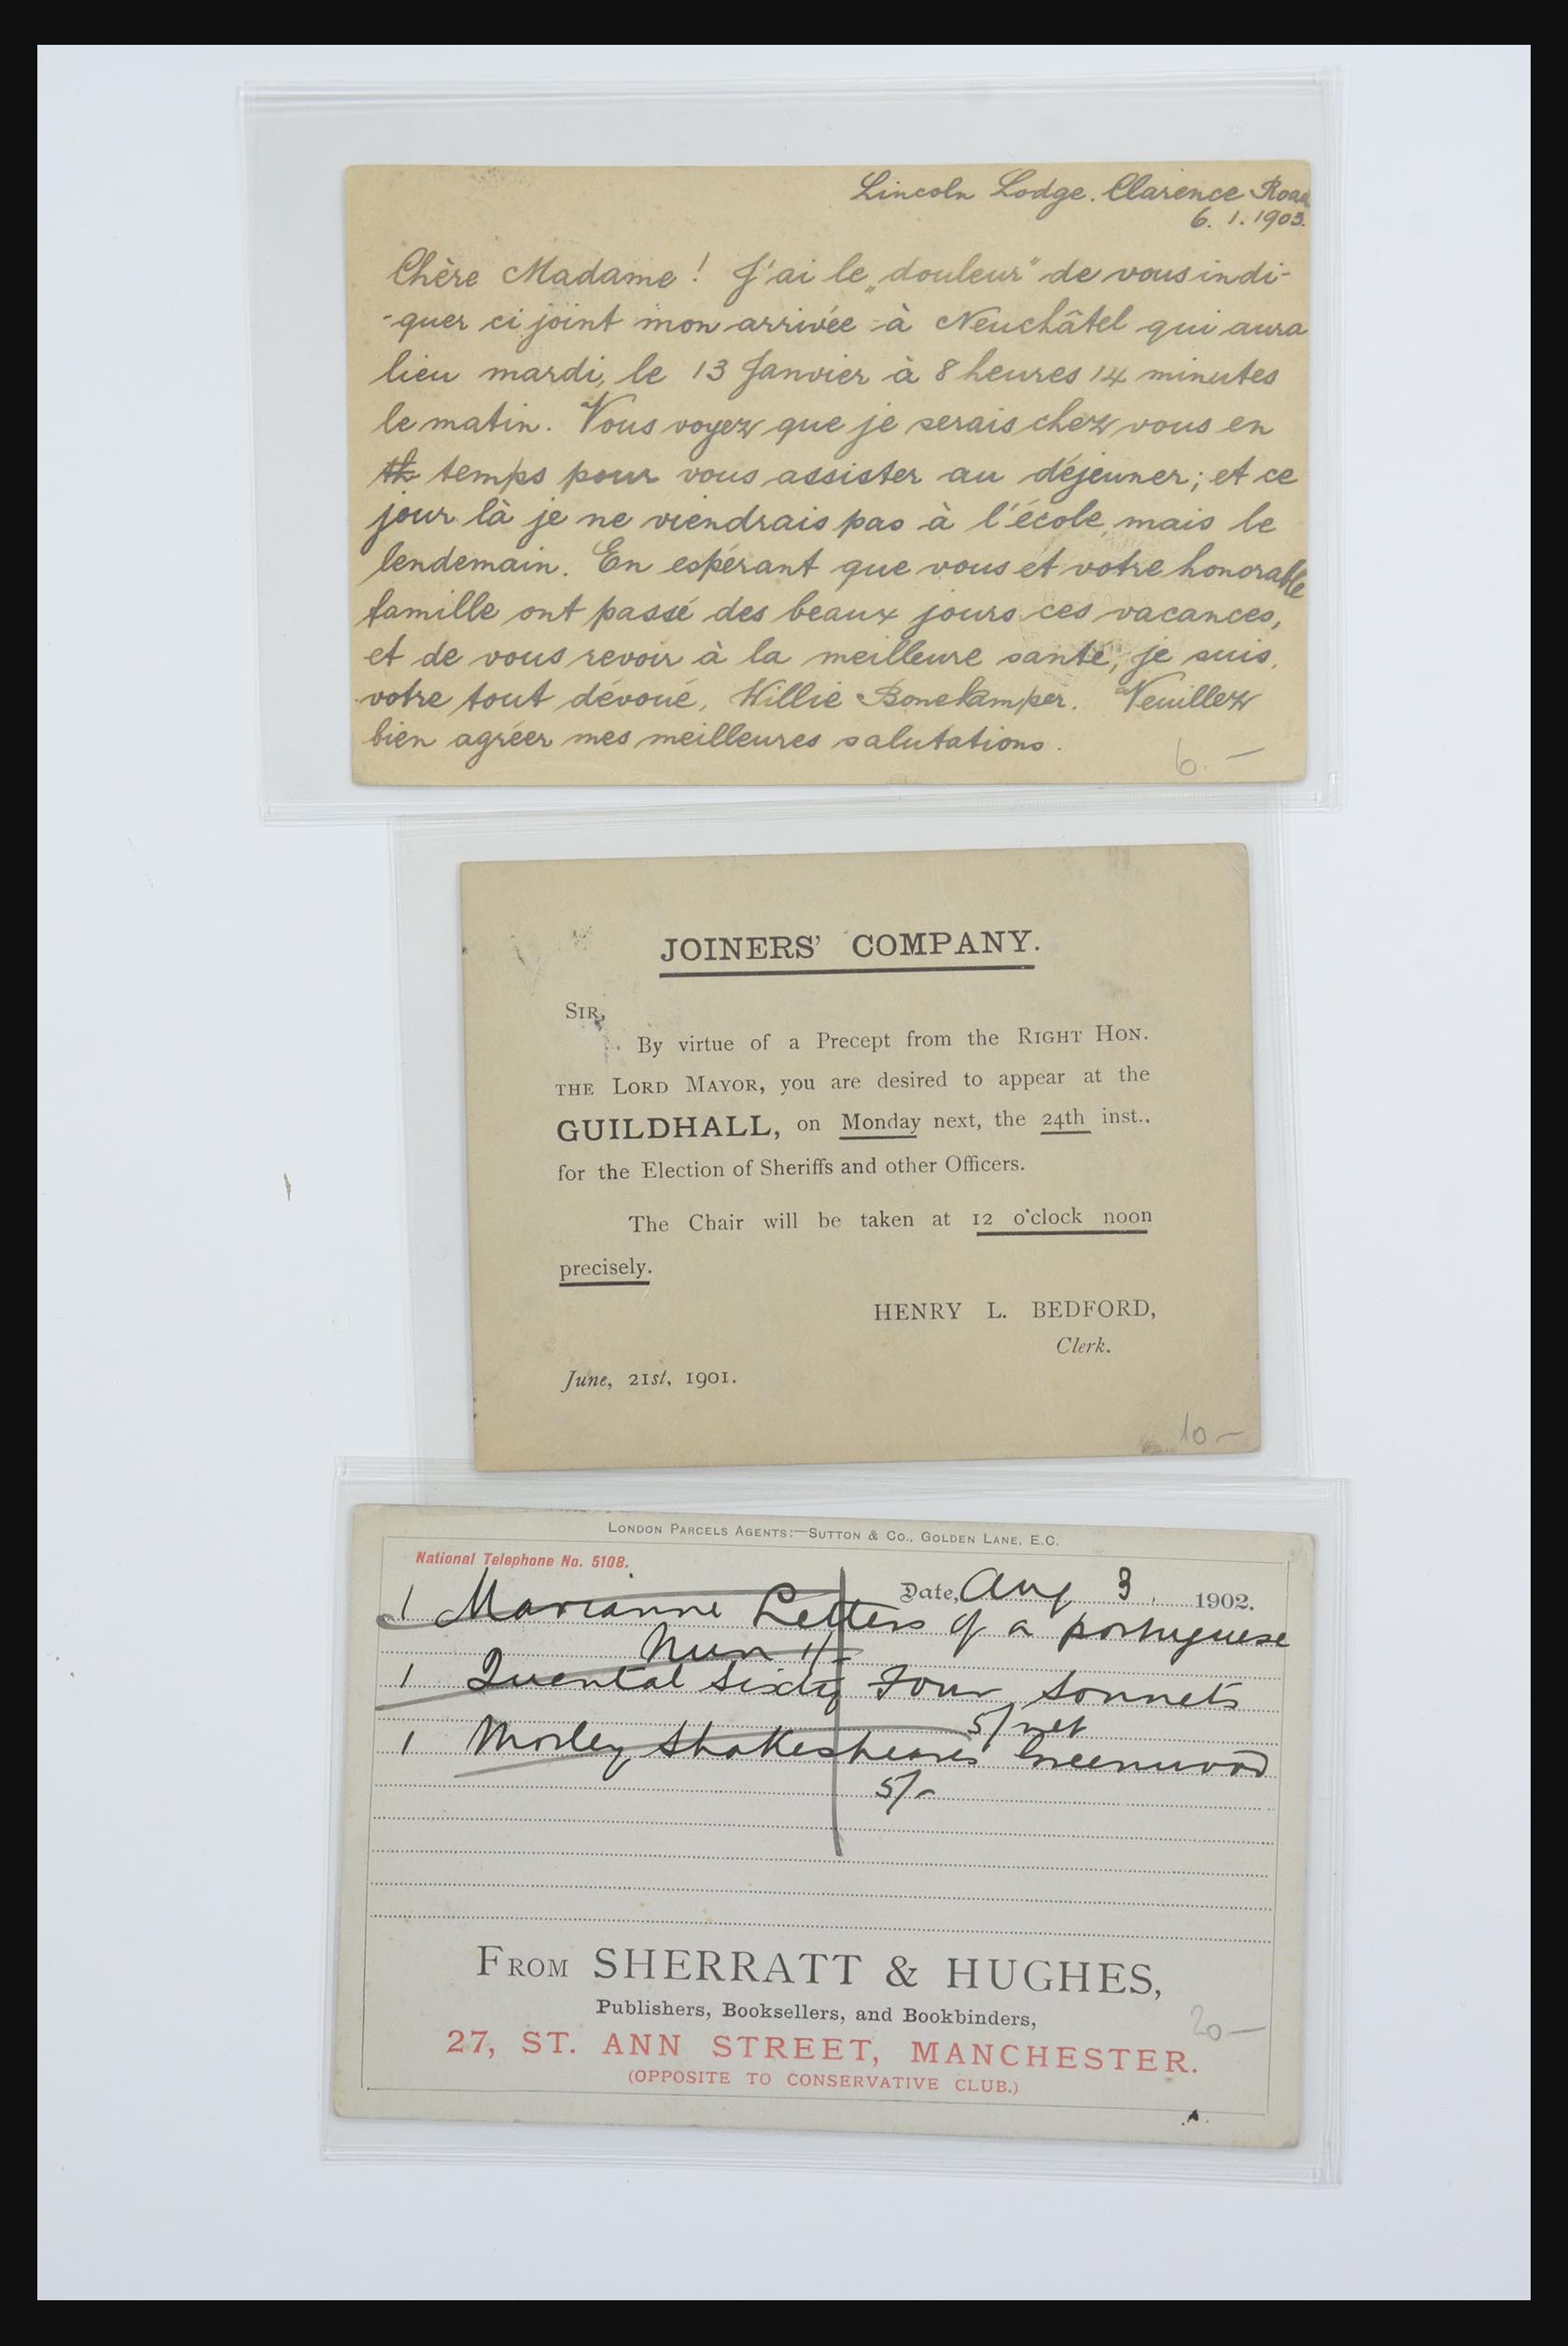 Lincoln Lodge. Clarence Road
6. 1. 1903.
Chère Madame ! J'ai le „douleur" de vous indi-
-quer ci joint mon arrivée à Neuchâtel qui aura
lieu mardi, le 13 Janvier à 8 heures 14 minutes
le matin. Vous voyez que je serais chez vous en
temps pour vous assister au déjeuner; et ce
jour là je ne viendrais pas à l'école, mais le
lendemain. En espérant que vous et votre honorable
famille ont passé des beaux jours ces vacances,
et de vous revoir à la meilleure santé, je suis,
votre tout dévoué, Willie Bonekamper. Veuillez
bien agréer mes meilleures salutations.
6. —
JOINERS' COMPANY.
SIR,
By virtue of a Precept from the RIGHT HON.
THE LORD MAYOR, you are desired to appear at the
GUILDHALL, on Monday next, the 24th inst.,
for the Election of Sheriffs and other Officers.
The Chair will be taken at 12 o'clock noon
precisely.
HENRY L. BEDFORD,
Clerk.
June, 21st, 1901.
10.—
LONDON PARCELS AGENTS:—SUTTON & CO., GOLDEN LANE, E.C.
National Telephone No. 5108.
Date, Aug 3. 1902.
1 Marianne Letters of a portuguese
Nun 1/-
1 Quental Sixty Four Sonnets
5/ net
1 Morley Shakespeares Greenwood
5/-
FROM SHERRATT & HUGHES,
Publishers, Booksellers, and Bookbinders,
27, ST. ANN STREET, MANCHESTER.
(OPPOSITE TO CONSERVATIVE CLUB.)
20—